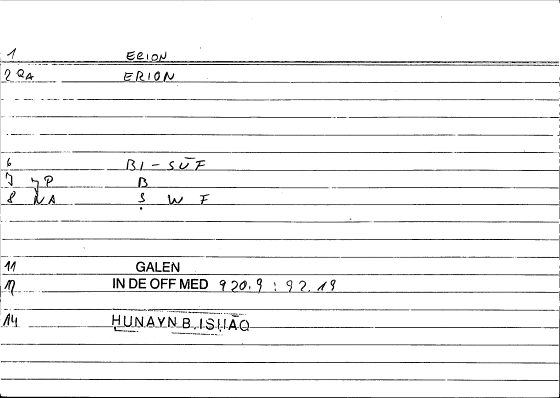 1 ERION
2 QA ERION
6 BI-SŪF
7 YP B
8 NA Ṣ W F
11 GALEN
12 IN DE OFF MED 920.9 : 92.19
14 HUNAYN B. ISHAQ